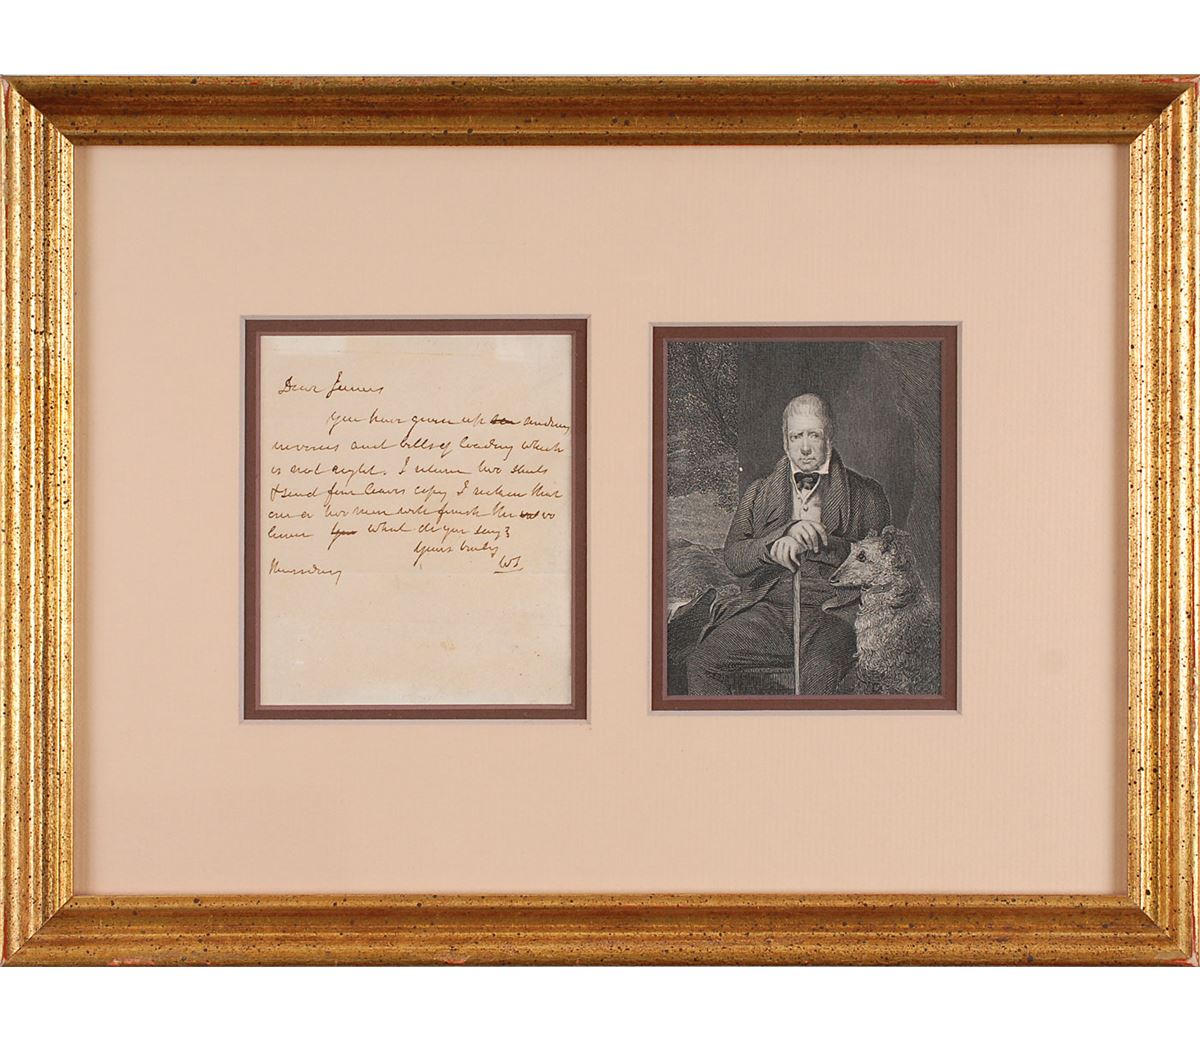 Dear James
You have given up sending
invoices and bills of loading which
is not right. I return two sheets
& send four leaves copy I reckon that
one or two more will finish the
What do you say?
Yours truly
WS
Thursday